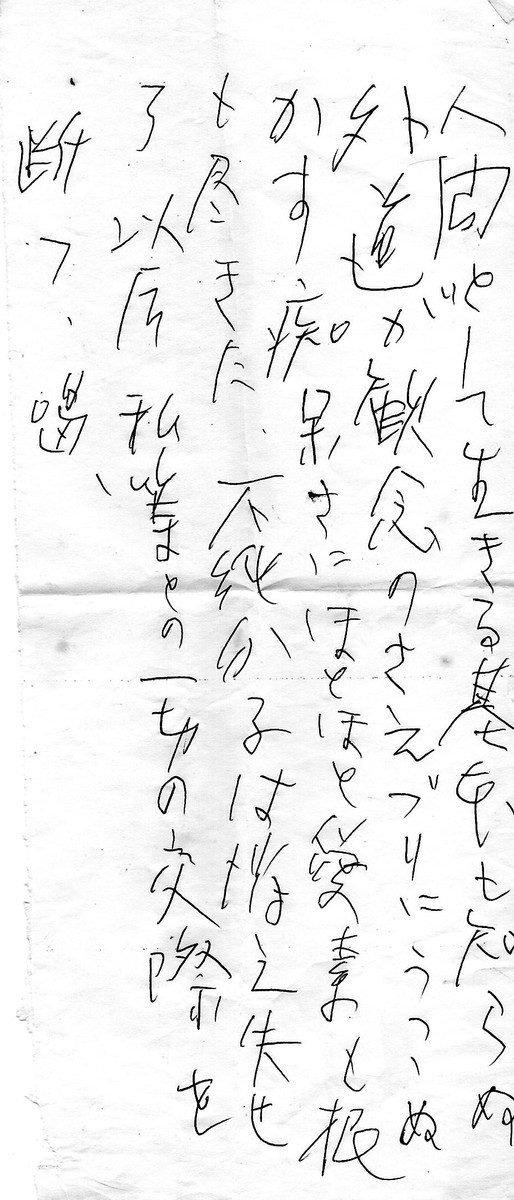 人間として生きる基本も知らぬ
外道が観念のさえづりにうつゝぬ
かす、痴呆さにほとほと愛素も根
も尽きた、不純分子は消え失せ
ろ 以后 私との一切の交際を
断つ、喝